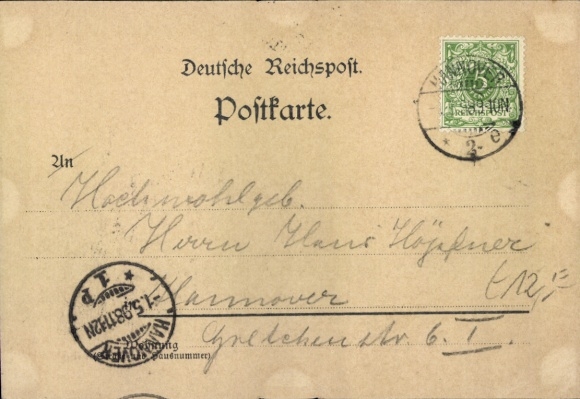 Deutsche Reichspost.
Postkarte.
HANNOVER
5
REICHSPOST
2- e
An
Hochwohlgeb.
Herrn Hans Höpfner
Hannover
Gretchenstr. 6. I.
Wohnung
(Straße und Hausnummer)
HANNOVER
1.5.98.11-12N
1 d